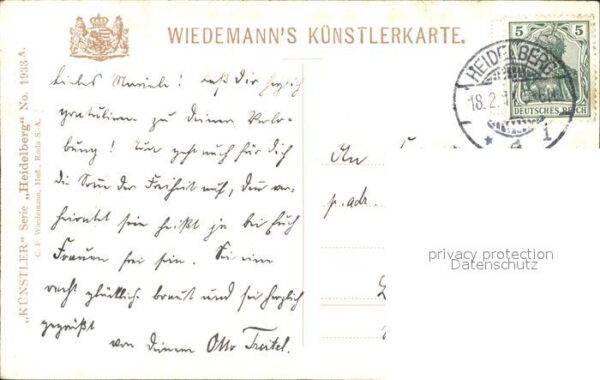 WIEDEMANN'S KÜNSTLERKARTE.
5 5
DEUTSCHES REICH
HEIDELBERG
18.2.
1
„KÜNSTLER“ Serie „Heidelberg“ No. 1933 A.
C. F. Wiedemann, Hofl. Roda S.-A.
Liebes Mariele! Laß Dir herzlich
gratulieren zu Deiner Verlo-
bung! Nun geht auch für Dich
die Sonne der Freiheit auf, denn ver-
heiratet sein heißt ja bei Euch
Frauen frei sein. Sei eine
recht glückliche Braut und sei herzlich
gegrüßt
von Deinem Otto Treitel.
An
p. adr.
privacy protection
Datenschutz